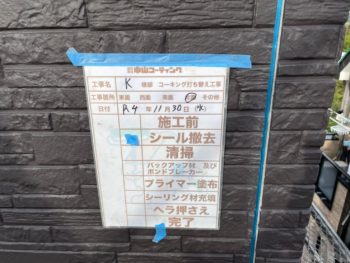 中山コーティング
工事名 K 様邸 コーキング打ち替え工事
工事箇所 東面 西面 南面 その他
日付 R4年11月30日(水)
施工前
シール撤去
清掃
バックアップ材 及び
ボンドブレーカー
プライマー塗布
シーリング材充填
ヘラ押さえ
完了